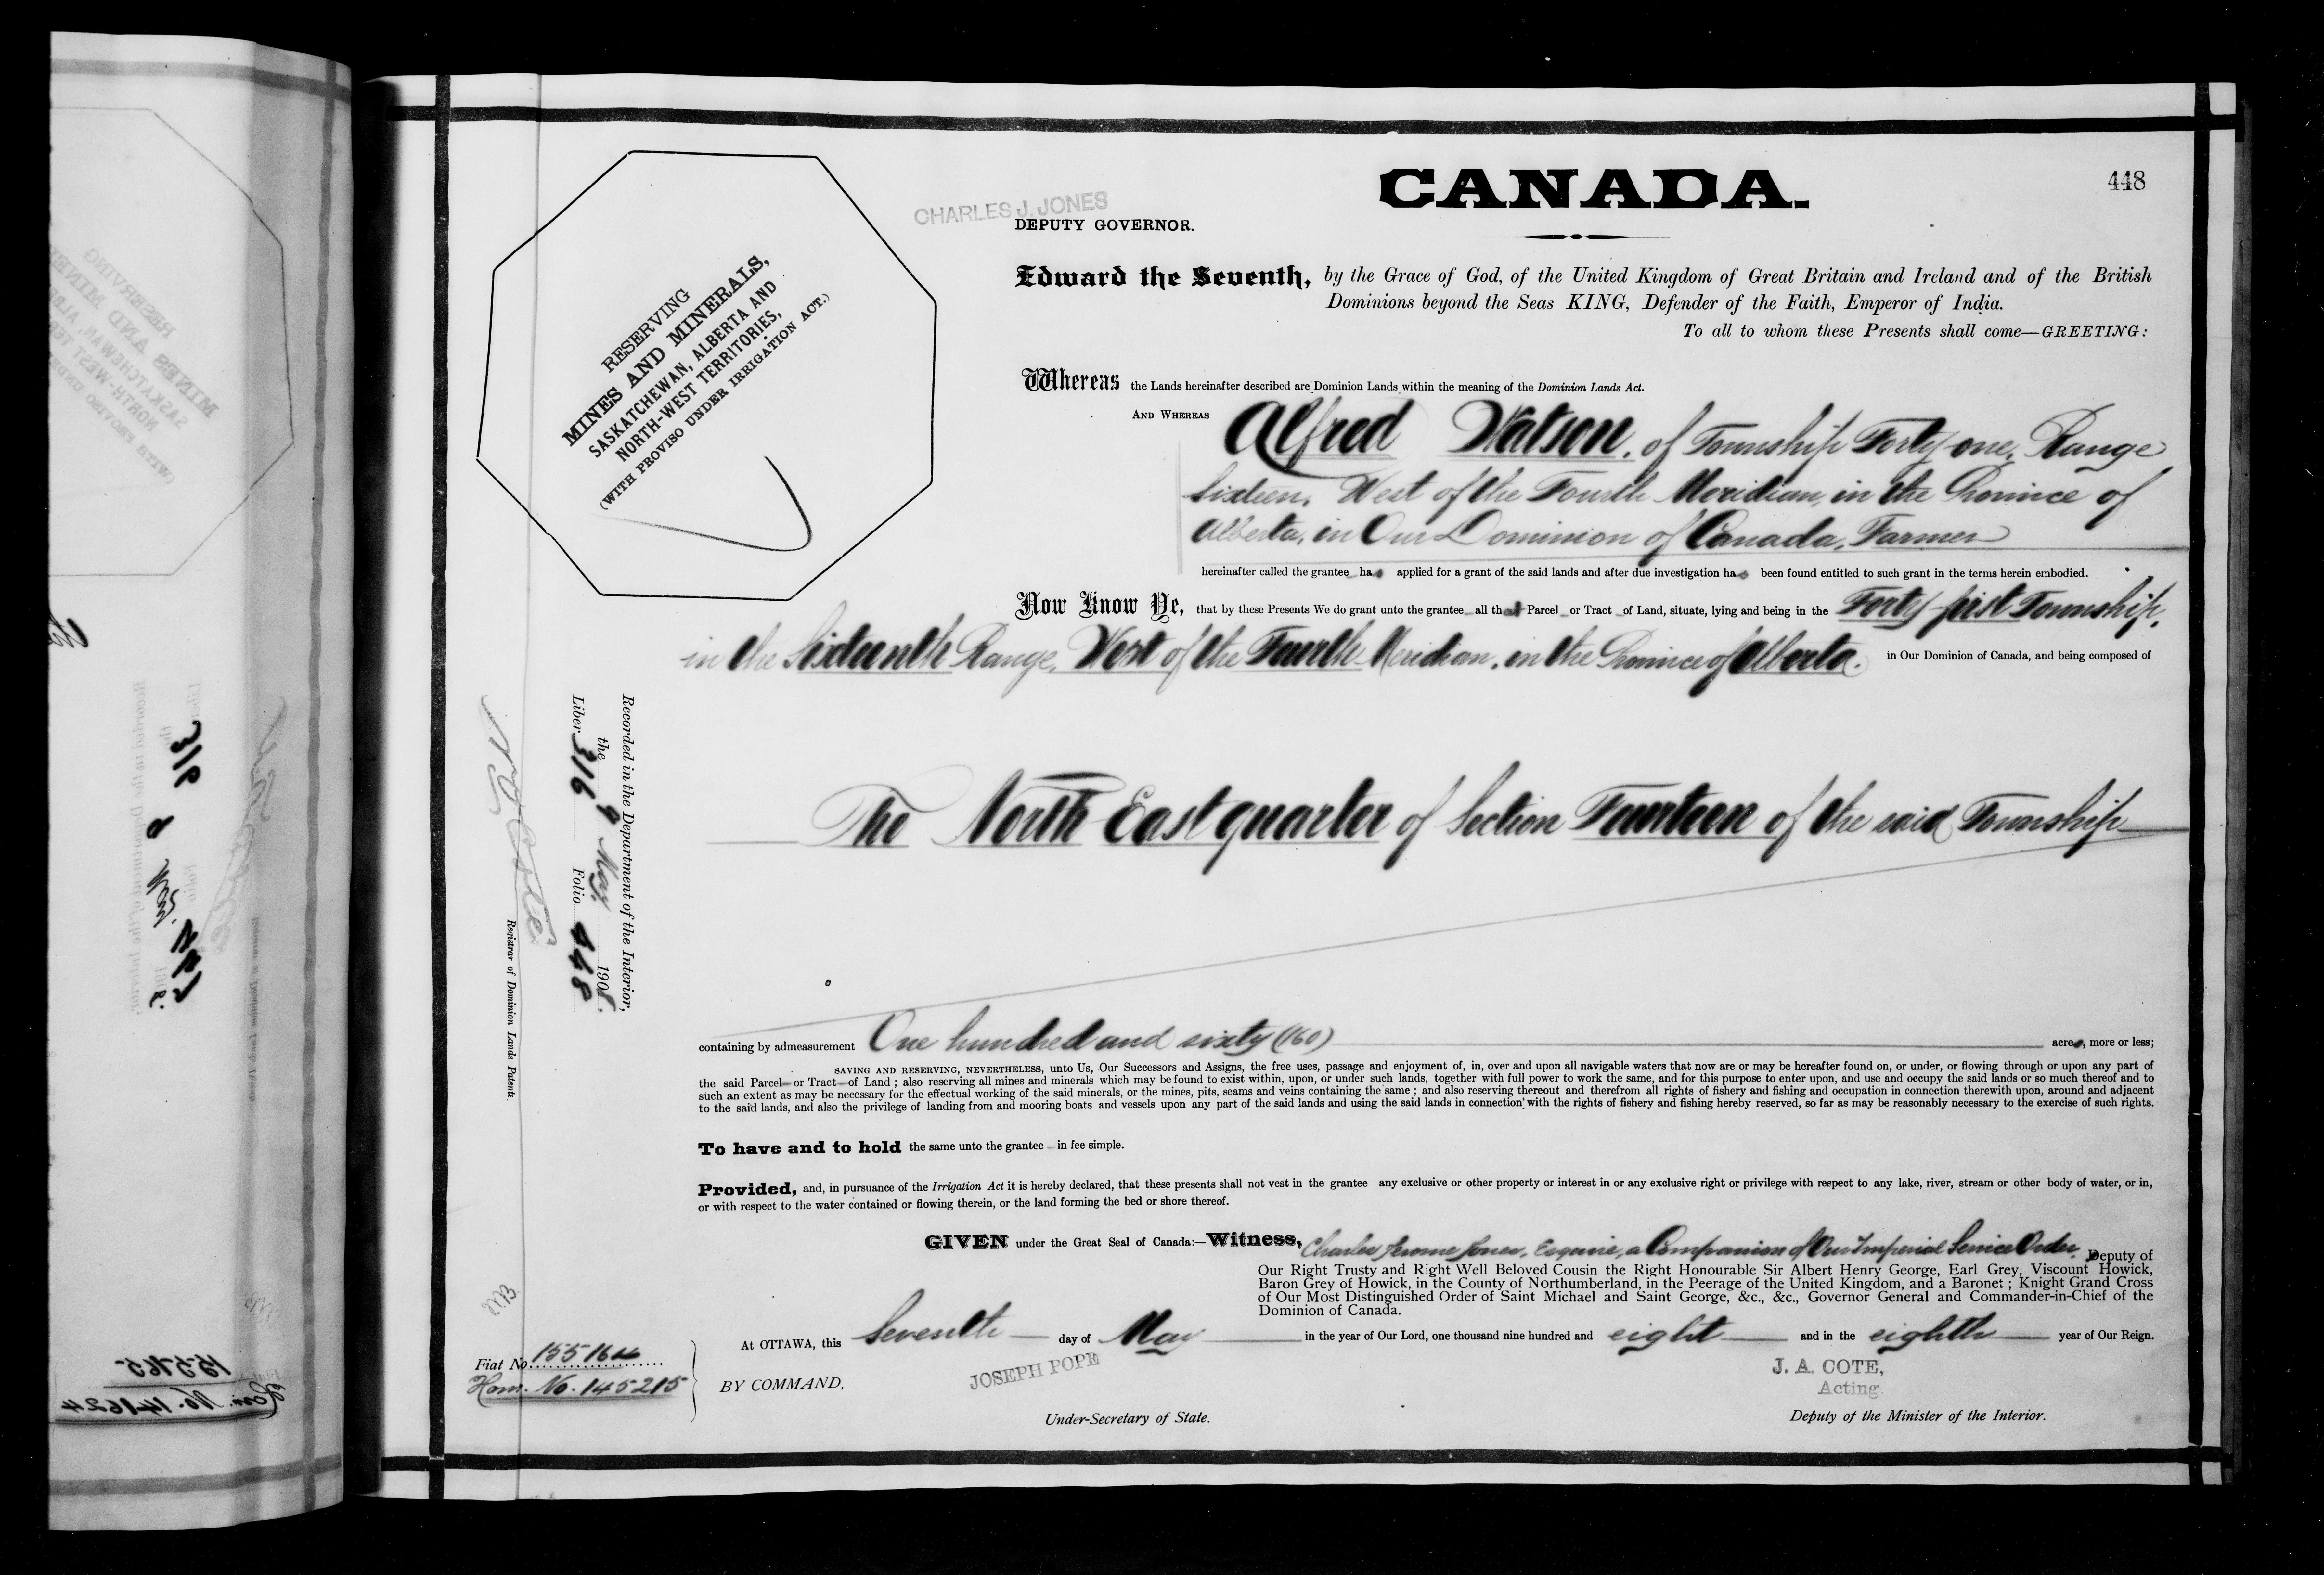 CANADA.
448
CHARLES J. JONES
DEPUTY GOVERNOR.
RESERVING
MINES AND MINERALS,
SASKATCHEWAN, ALBERTA AND
NORTH-WEST TERRITORIES,
(WITH PROVISO UNDER IRRIGATION ACT.)
Edward the Seventh, by the Grace of God, of the United Kingdom of Great Britain and Ireland and of the British
Dominions beyond the Seas KING, Defender of the Faith, Emperor of India.
To all to whom these Presents shall come—GREETING:
Whereas the Lands hereinafter described are Dominion Lands within the meaning of the Dominion Lands Act.
AND WHEREAS Alfred Watson, of Township Forty-one, Range
Sixteen, West of the Fourth Meridian, in the Province of
Alberta, in Our Dominion of Canada, Farmer
hereinafter called the grantee has applied for a grant of the said lands and after due investigation has been found entitled to such grant in the terms herein embodied.
Now Know Ye, that by these Presents We do grant unto the grantee all that Parcel or Tract of Land, situate, lying and being in the Forty-first Township,
in the Sixteenth Range, West of the Fourth Meridian, in the Province of Alberta. in Our Dominion of Canada, and being composed of
The North East quarter of Section Fourteen of the said Township
Recorded in the Department of the Interior,
the 9 May 1908.
Liber 316 Folio 448
N O Coté
Registrar of Dominion Lands Patents.
containing by admeasurement One hundred and sixty (160) acres, more or less;
SAVING AND RESERVING, NEVERTHELESS, unto Us, Our Successors and Assigns, the free uses, passage and enjoyment of, in, over and upon all navigable waters that now are or may be hereafter found on, or under, or flowing through or upon any part of
the said Parcel or Tract of Land ; also reserving all mines and minerals which may be found to exist within, upon, or under such lands, together with full power to work the same, and for this purpose to enter upon, and use and occupy the said lands or so much thereof and to
such an extent as may be necessary for the effectual working of the said minerals, or the mines, pits, seams and veins containing the same ; and also reserving thereout and therefrom all rights of fishery and fishing and occupation in connection therewith upon, around and adjacent
to the said lands, and also the privilege of landing from and mooring boats and vessels upon any part of the said lands and using the said lands in connection with the rights of fishery and fishing hereby reserved, so far as may be reasonably necessary to the exercise of such rights.
To have and to hold the same unto the grantee in fee simple.
Provided, and, in pursuance of the Irrigation Act it is hereby declared, that these presents shall not vest in the grantee any exclusive or other property or interest in or any exclusive right or privilege with respect to any lake, river, stream or other body of water, or in,
or with respect to the water contained or flowing therein, or the land forming the bed or shore thereof.
GIVEN under the Great Seal of Canada:—Witness, Charles Jerome Jones, Esquire, a Companion of Our Imperial Service Order, Deputy of
Our Right Trusty and Right Well Beloved Cousin the Right Honourable Sir Albert Henry George, Earl Grey, Viscount Howick,
Baron Grey of Howick, in the County of Northumberland, in the Peerage of the United Kingdom, and a Baronet ; Knight Grand Cross
of Our Most Distinguished Order of Saint Michael and Saint George, &c., &c., Governor General and Commander-in-Chief of the
Dominion of Canada.
At OTTAWA, this Seventh day of May in the year of Our Lord, one thousand nine hundred and eight and in the eighth year of Our Reign.
Fiat No. 155164
Hom. No. 145215
BY COMMAND,
JOSEPH POPE
Under-Secretary of State.
J. A. COTE,
Acting
Deputy of the Minister of the Interior.